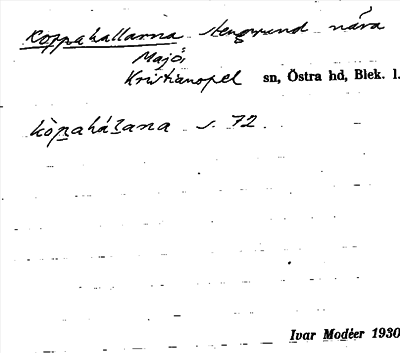 Koppahallarna stengrund nära
Majö,
Kristianopel sn, Östra hd, Blek. l.
kòpaháʅana s. 72.
Ivar Modéer 1930